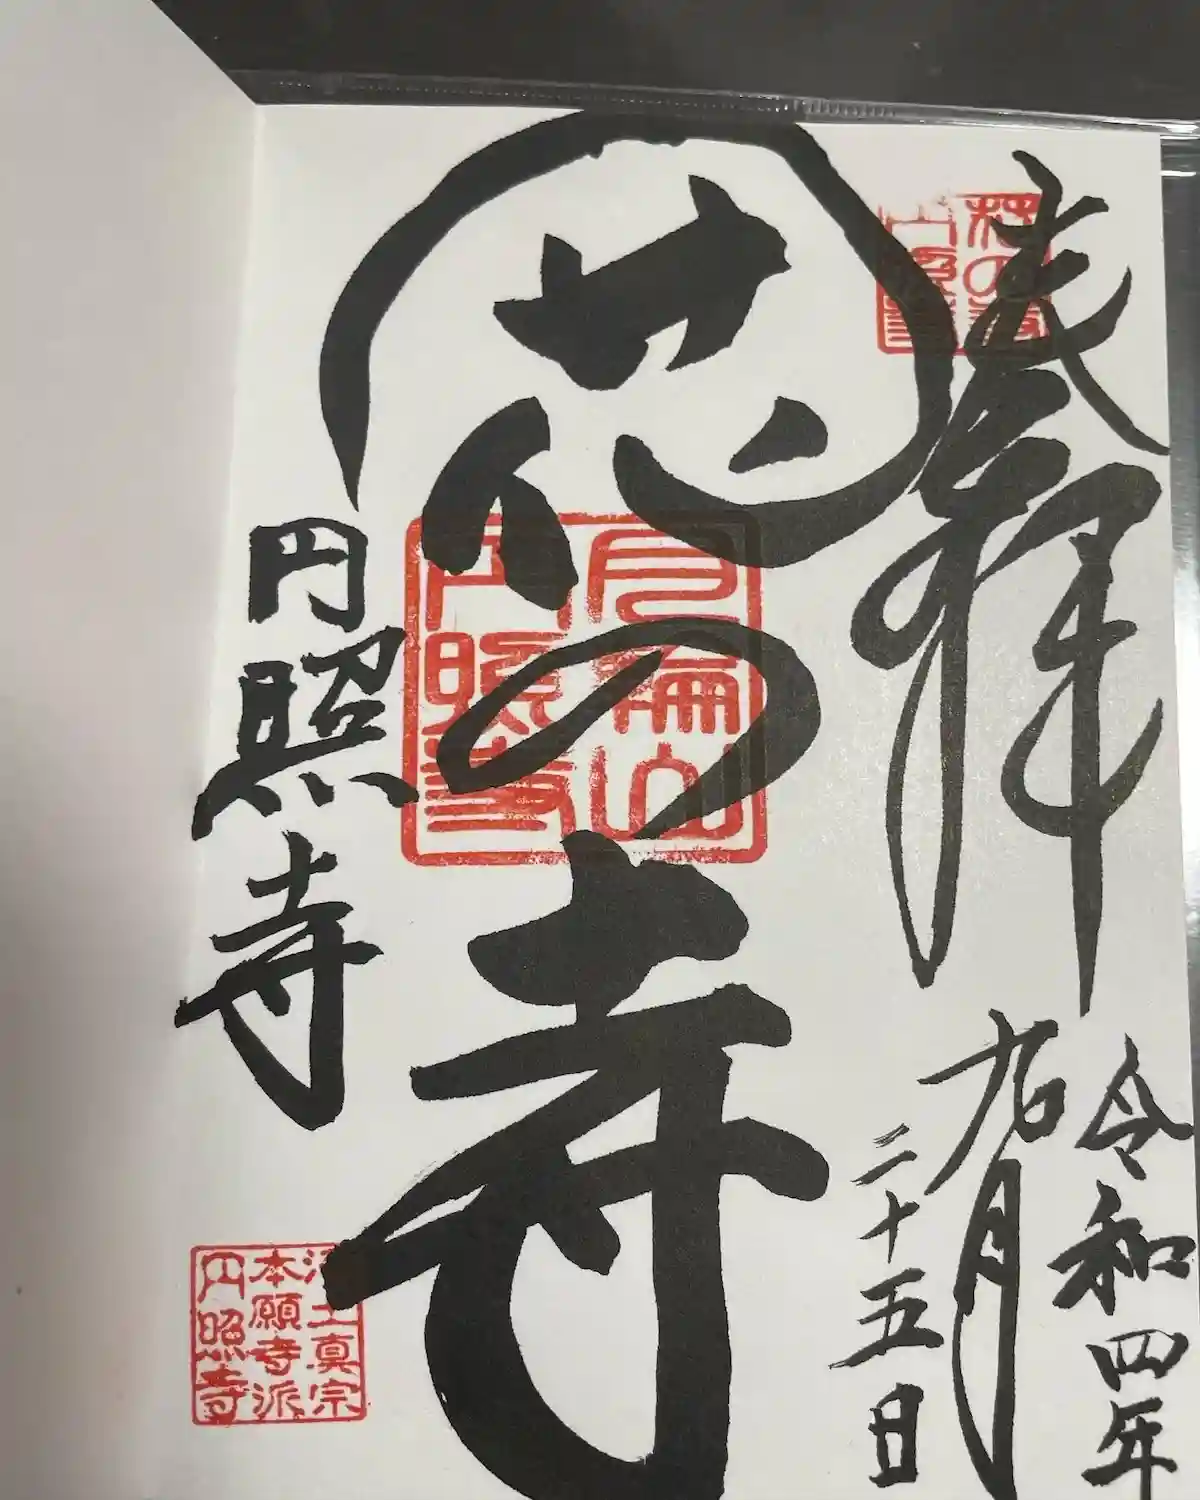 奉拝
令和四年
九月
二十五日
花の寺
月輪山
円照寺
円照寺
浄土真宗
本願寺派
円照寺